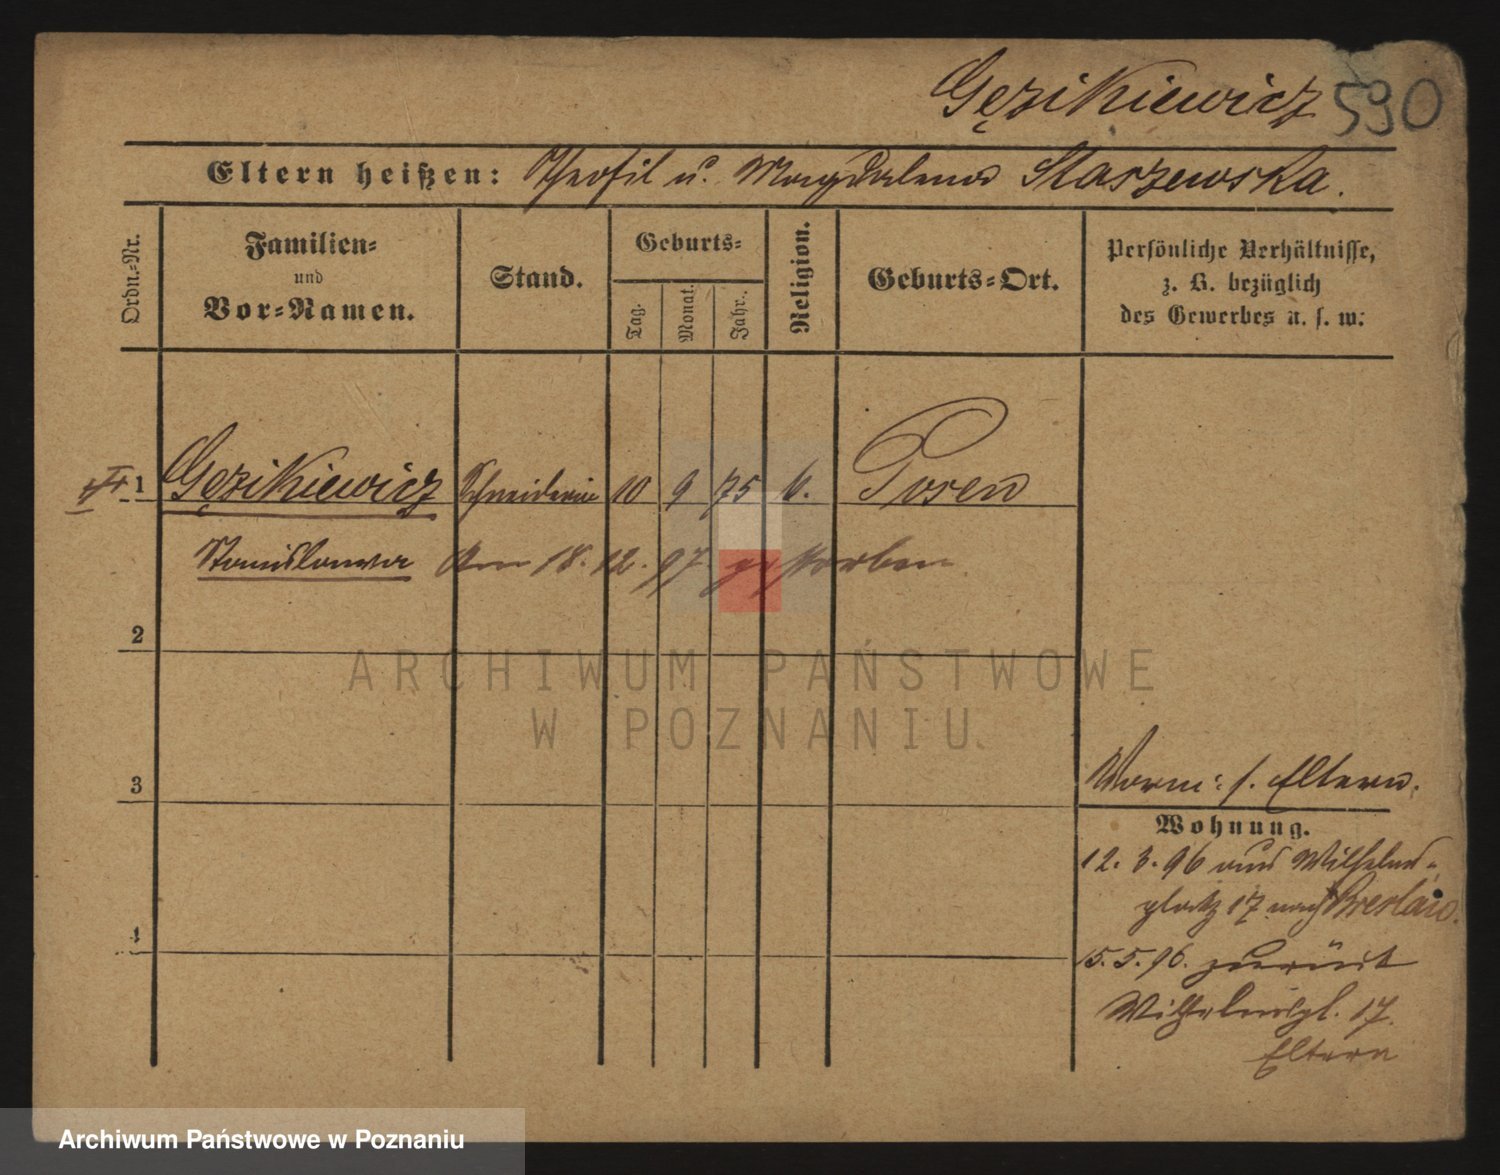 Gęzikiewicz 590
Eltern heißen: Theofil u. Magdalena Staszewska.
Ordn.-Nr.
Familien-
und
Vor-Namen.
Stand.
Geburts-
Tag.
Monat.
Jahr.
Religion.
Geburts-Ort.
Persönliche Verhältnisse,
z. B. bezüglich
des Gewerbes u. s. w:
1 Gęzikiewicz Schneiderin 10 9 75 k. Posen
Stanislawa Am 18. 12. 97. gestorben
2
3
4
Vorm: s. Eltern.
Wohnung.
12. 3. 96 aus Wilhelms-
platz 17 nach Breslau.
15. 5. 96. zurück
Wilhelmspl. 17.
Eltern
ARCHIWUM PAŃSTWOWE
W POZNANIU
Archiwum Państwowe w Poznaniu